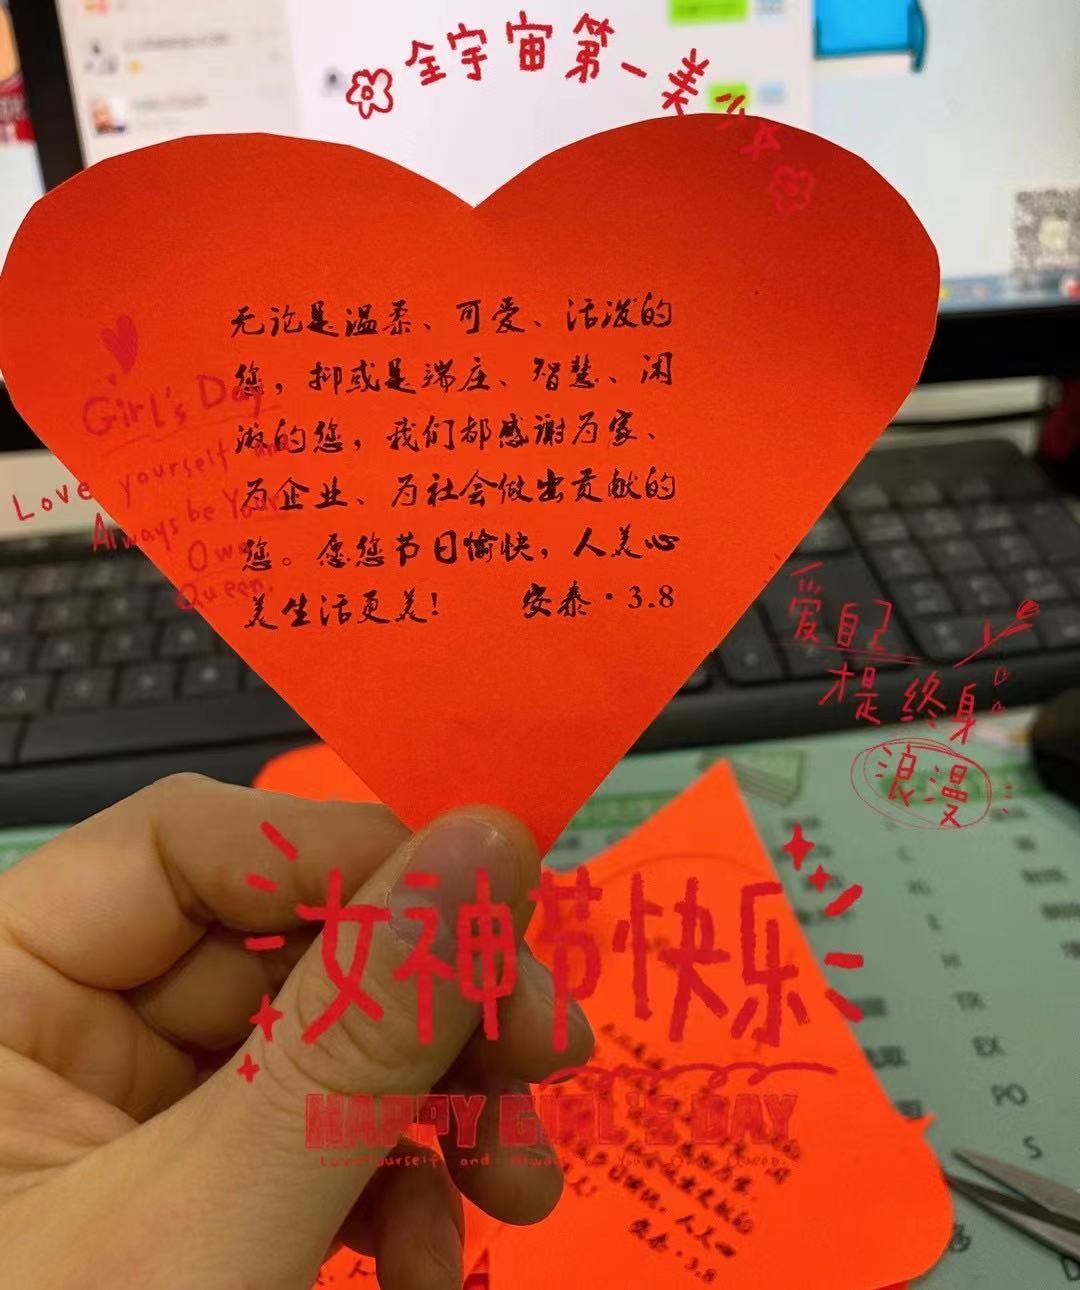 全宇宙第一美少女
无论是温柔、可爱、活泼的
您，抑或是端庄、智慧、闲
淑的您，我们都感谢为家、
为企业、为社会做出贡献的
您。愿您节日愉快，人美心
美生活更美！ 安泰·3.8
Girl's Day
Love yourself and
Always be Your
Own
Queen.
爱自己
才是终身
浪漫
女神节快乐
HAPPY GIRL'S DAY
Love Yourself and Always be Your Own Queen.
TR
EX
PO
S
人美心
安泰·3.8